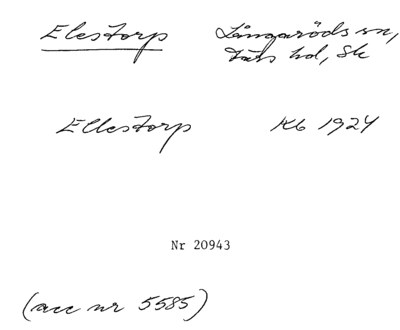 Elestorp Långaröds sn,
Färs hd, Sk
Ellestorp Kb 1924
Nr 20943
(acc nr 5585)